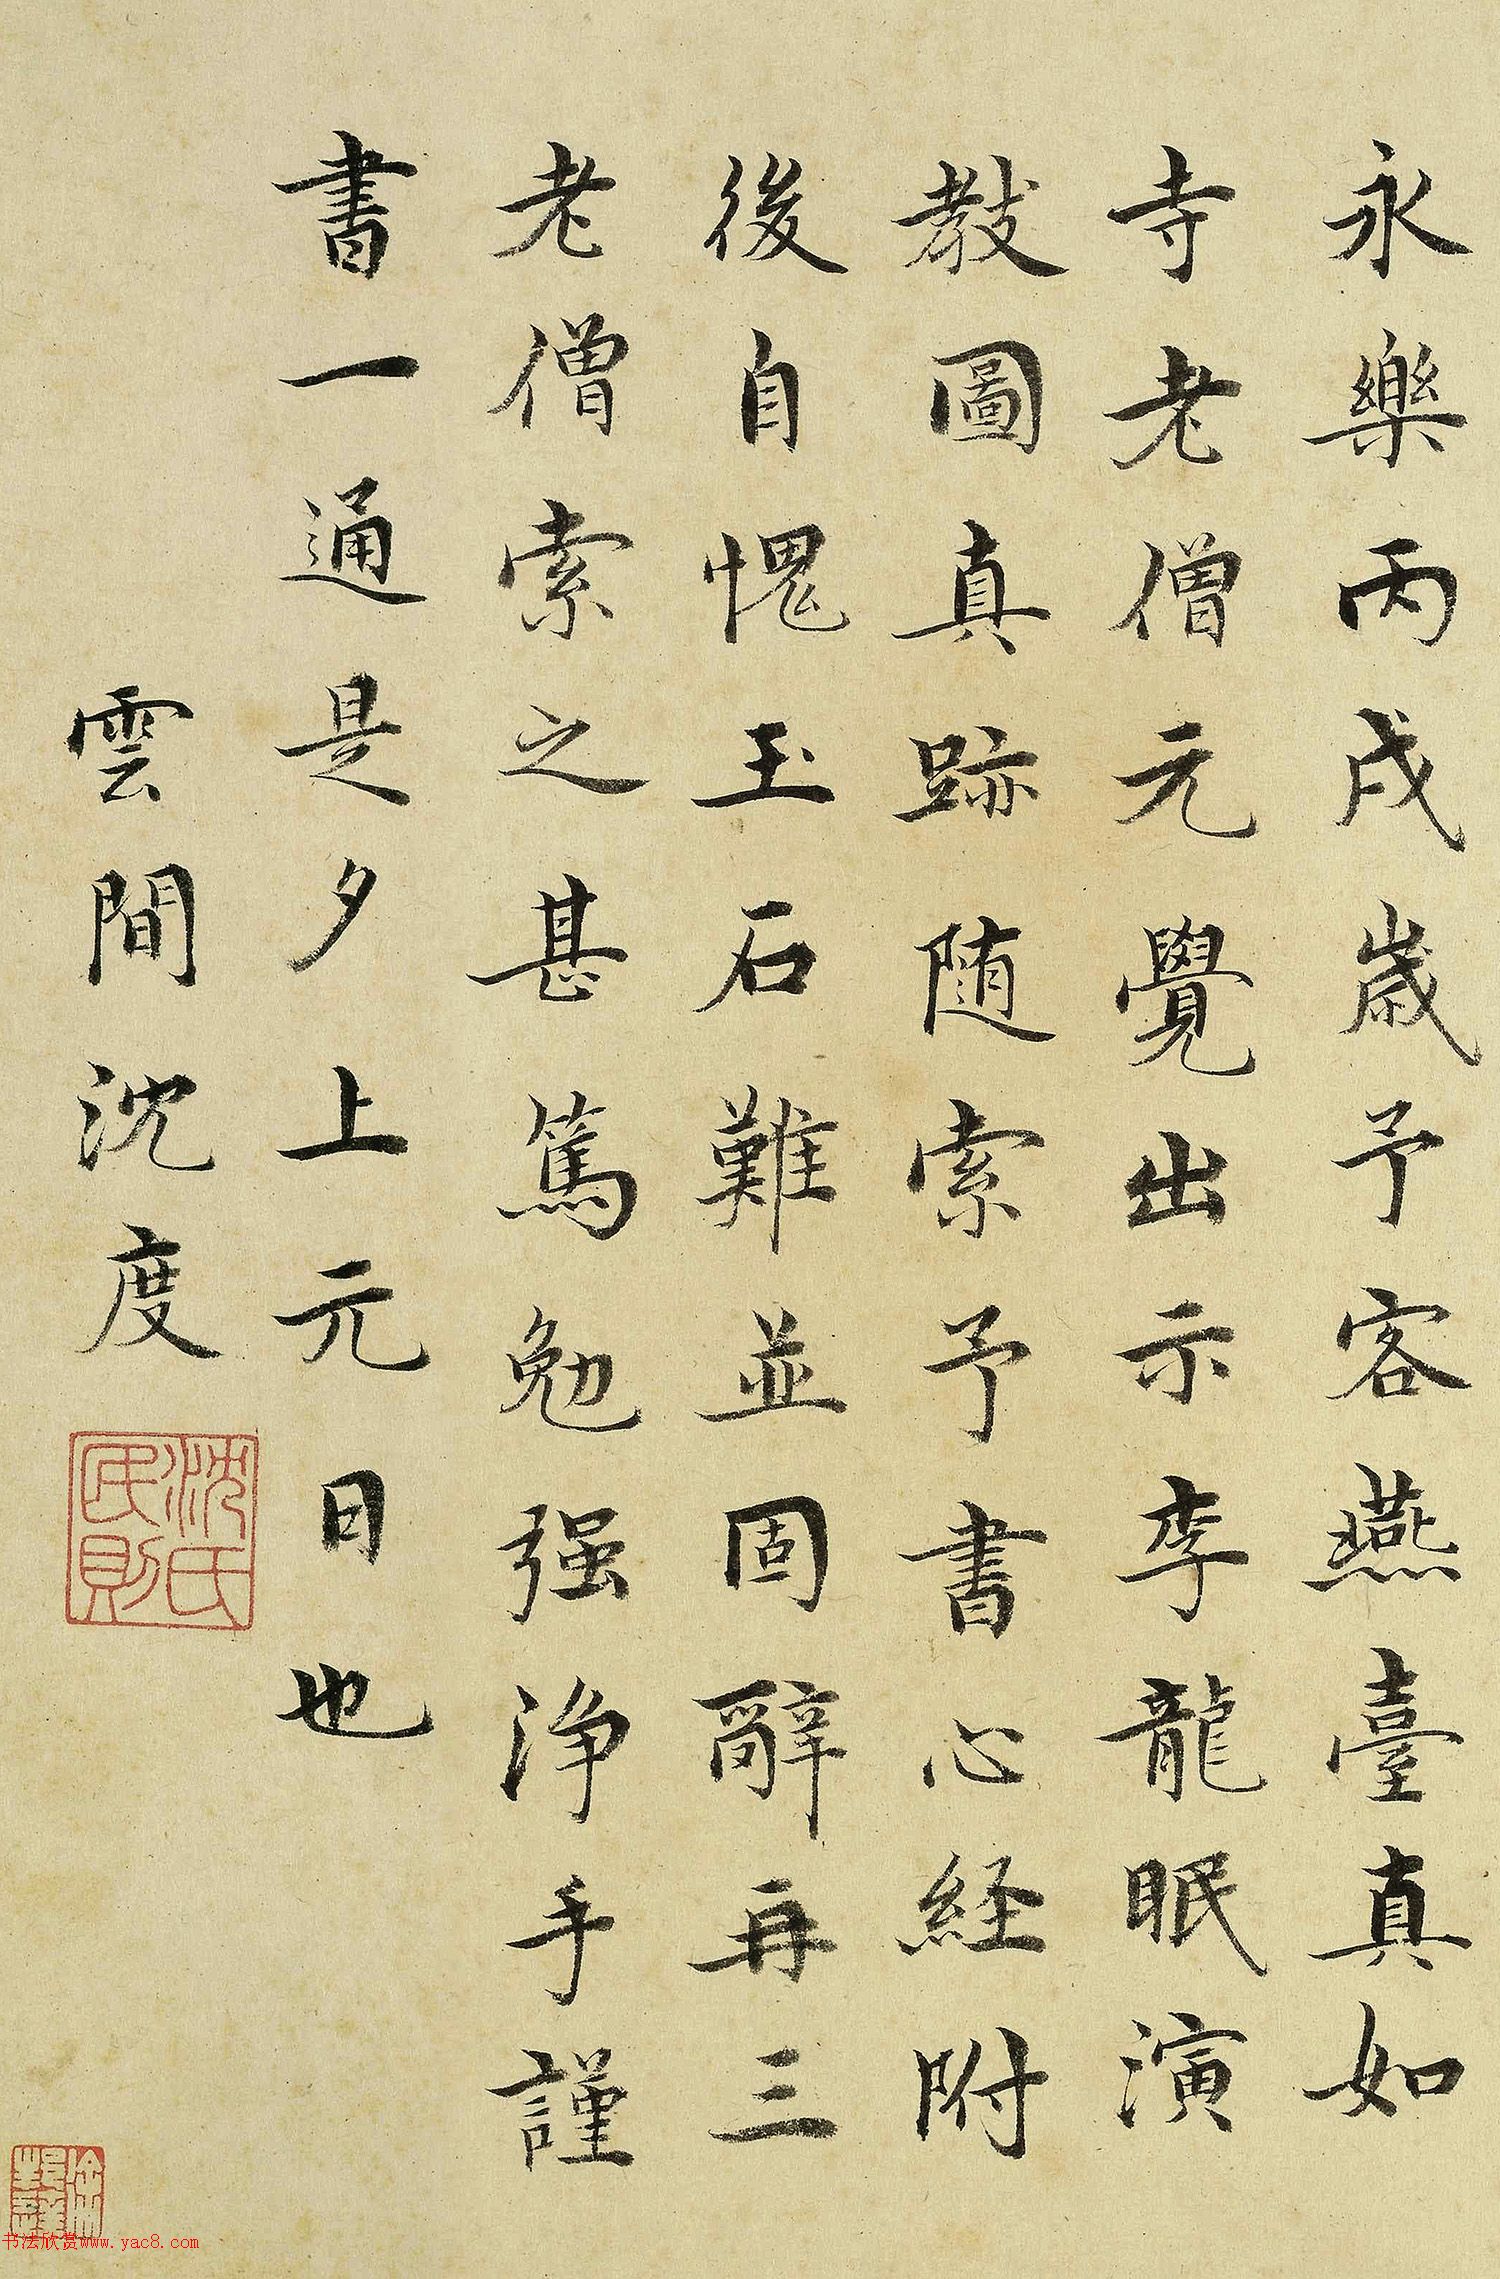 永樂丙戌歲予客燕臺真如
寺老僧元覺出示李龍眠演
教圖真跡随索予書心経附
後自愧玉石難並固辭再三
老僧索之甚篤勉强浄手謹
書一通是夕上元日也
雲間沈度
沈氏
民則
书法欣赏www.yac8.com